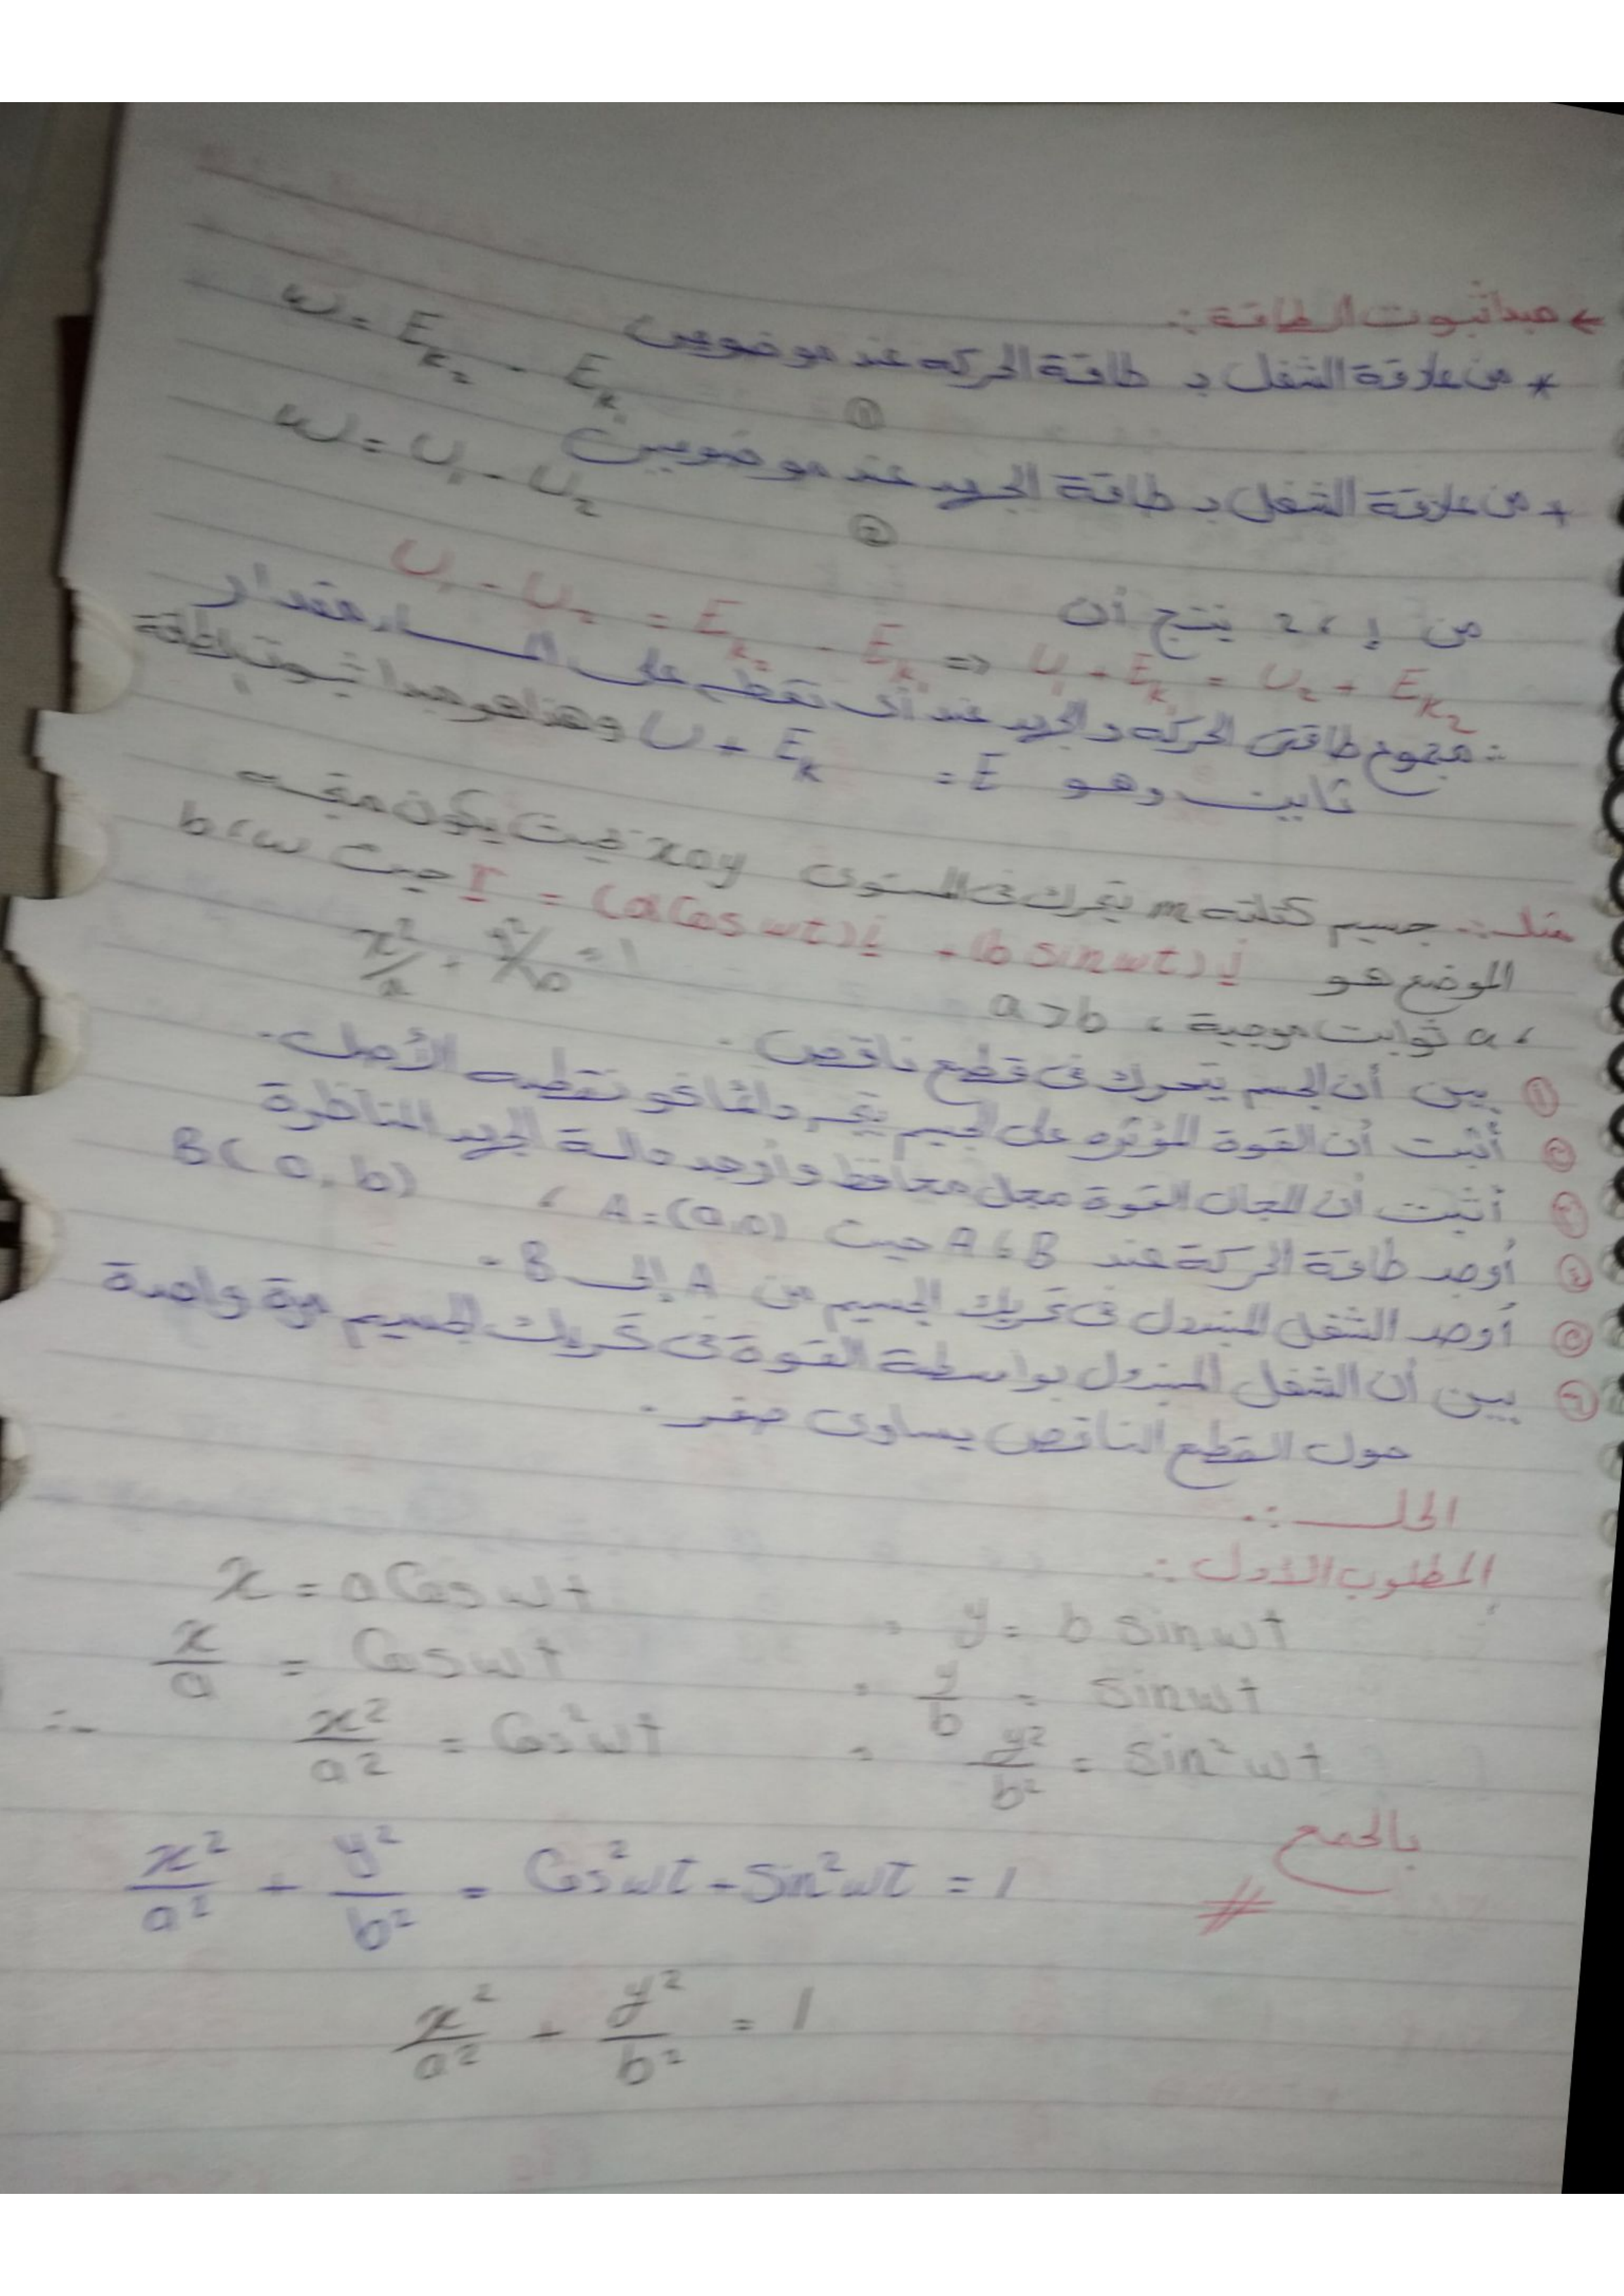 ← مبدأ ثبوت الطاقة :.
* من علاقة الشغل بـ طاقة الحركه عند موضوعين w = E_k₂ - E_k₁ ①
+ من علاقة الشغل بـ طاقة الجهد عند موضوعين w = U₁ - U₂ ②
من 1 ، 2 ينتج أن
U₁ - U₂ = E_k₂ - E_k₁ => U₁ + E_k₁ = U₂ + E_k₂
∴ مجموع طاقتى الحركه و الجهد عند أى نقطه على المسار مقدار
ثابت وهو E = U + E_k وهذا هو مبدا ثبوت الطاقة
مثال :. جسيم كتلته m يتحرك فى المستوى xoy بحيث يكون متجه
الموضع هو r = (a Cos wt) i + (b sin wt) j حيث b ، w
، a ثوابت موجبة ، a > b x²/a + y²/b = 1
① بين أن الجسم يتحرك فى قطع ناقص .
② أثبت أن القوة المؤثره على الجسيم تتجه دائما نحو نقطه الأصل .
③ أثبت أن المجال القوة مجل محافظ وأوجد دالة الجهد المناظرة
④ أوجد طاقة الحركة عند A ، B حيث A = (a,0) ، B(0,b)
⑤ أوجد الشغل المبذول فى تحريك الجسيم من A إلى B .
⑥ بين أن الشغل المبذول بواسطة القوة فى تحريك الجسيم مرة واحدة
حول القطع الناقص يساوى صفر .
الحل :.
المطلوب الأول :.
x = a Cos wt , y = b sin wt
x/a = Cos wt , y/b = sin wt
∴ x²/a² = Cos² wt , y²/b² = sin² wt
بالجمع
x²/a² + y²/b² = Cos² wt + Sin² wt = 1 #
x²/a² + y²/b² = 1